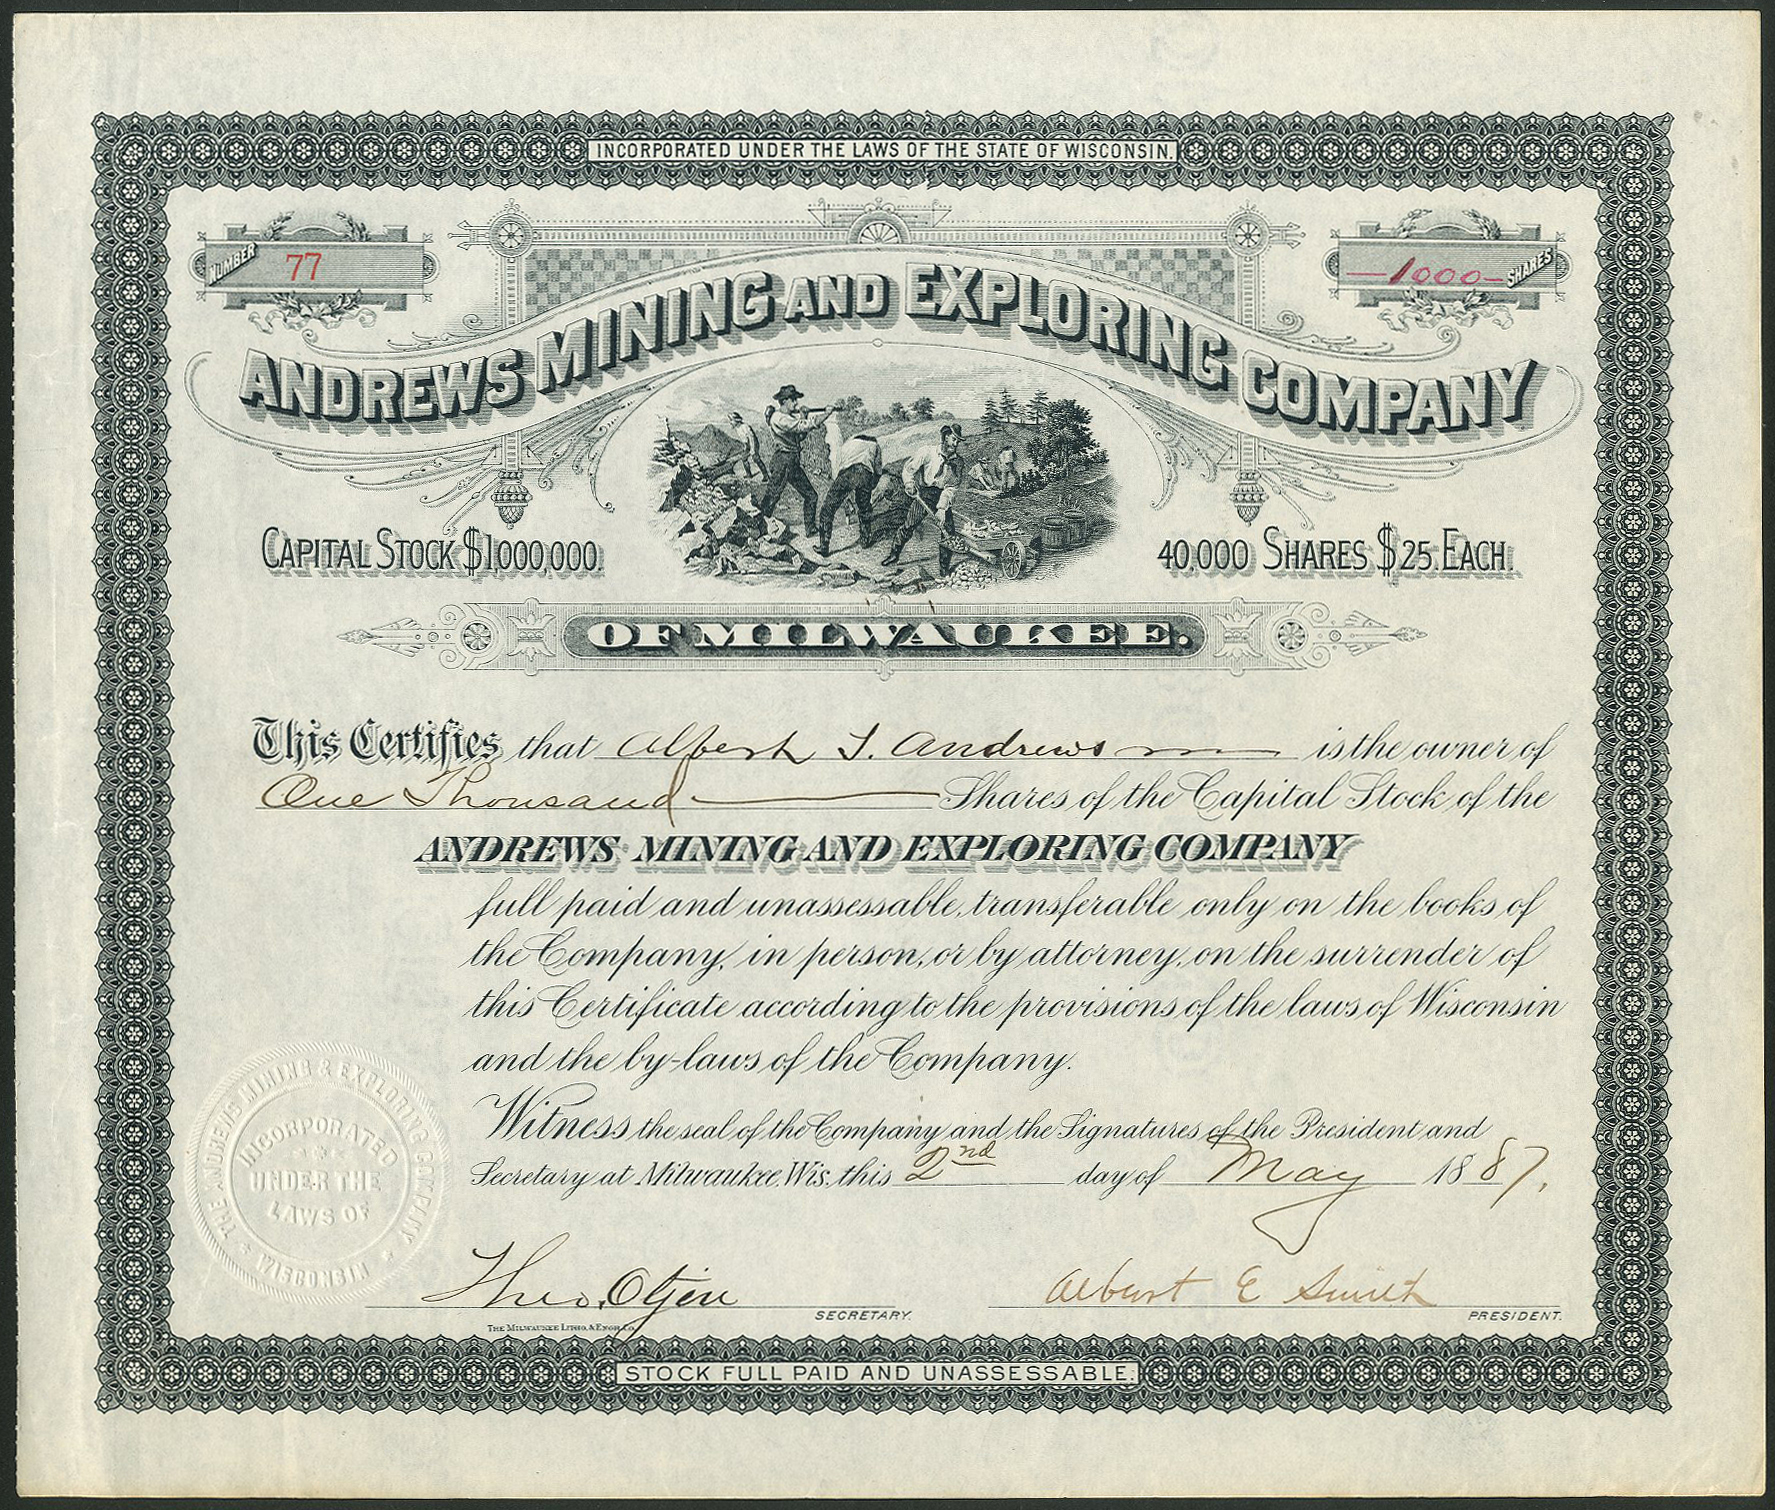 INCORPORATED UNDER THE LAWS OF THE STATE OF WISCONSIN.
NUMBER 77
1000 SHARES
ANDREWS MINING AND EXPLORING COMPANY
CAPITAL STOCK $1,000,000.
40,000 SHARES $25. EACH.
OF MILWAUKEE.
This Certifies that Albert T. Andrews is the owner of
One Thousand Shares of the Capital Stock of the
ANDREWS MINING AND EXPLORING COMPANY
full paid and unassessable, transferable only on the books of
the Company, in person, or by attorney, on the surrender of
this Certificate according to the provisions of the laws of Wisconsin
and the by-laws of the Company.
Witness the seal of the Company and the Signatures of the President and
Secretary at Milwaukee, Wis. this 2nd day of May 1887.
THE ANDREWS MINING & EXPLORING COMPANY
INCORPORATED
UNDER THE
LAWS OF
WISCONSIN
Theo. Otjen SECRETARY.
Albert E Smith PRESIDENT.
THE MILWAUKEE LITHO. & ENGR. CO.
STOCK FULL PAID AND UNASSESSABLE.